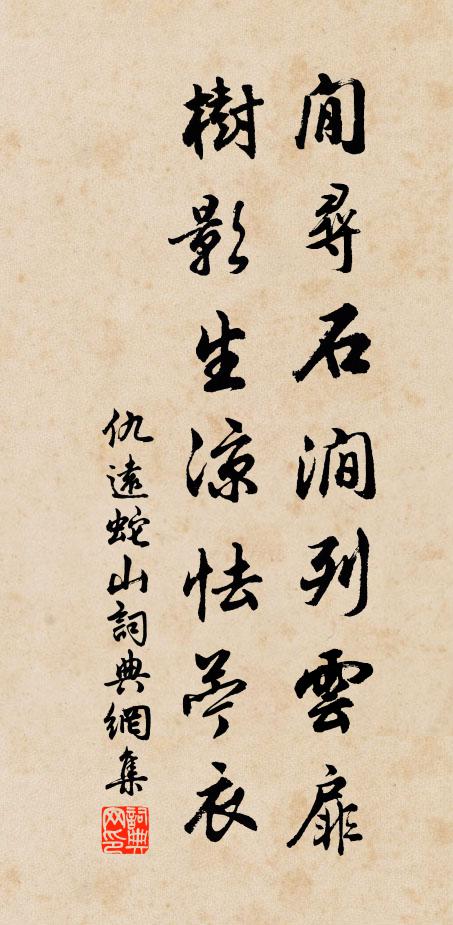 閒尋石澗列雲扉
樹影生涼怯苧衣
仇遠蛇山詞典網集
詞典網印